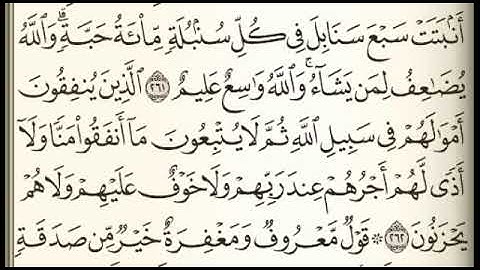 أَنۢبَتَتْ سَبْعَ سَنَابِلَ فِى كُلِّ سُنۢبُلَةٍ مِّا۟ئَةُ حَبَّةٍ ۗ وَٱللَّهُ
يُضَـٰعِفُ لِمَن يَشَآءُ ۗ وَٱللَّهُ وَٰسِعٌ عَلِيمٌ ٢٦١ ٱلَّذِينَ يُنفِقُونَ
أَمْوَٰلَهُمْ فِى سَبِيلِ ٱللَّهِ ثُمَّ لَا يُتْبِعُونَ مَآ أَنفَقُوا۟ مَنًّا وَلَآ
أَذًى لَّهُمْ أَجْرُهُمْ عِندَ رَبِّهِمْ وَلَا خَوْفٌ عَلَيْهِمْ وَلَا هُمْ
يَحْزَنُونَ ٢٦٢ ۞ قَوْلٌ مَّعْرُوفٌ وَمَغْفِرَةٌ خَيْرٌ مِّن صَدَقَةٍ